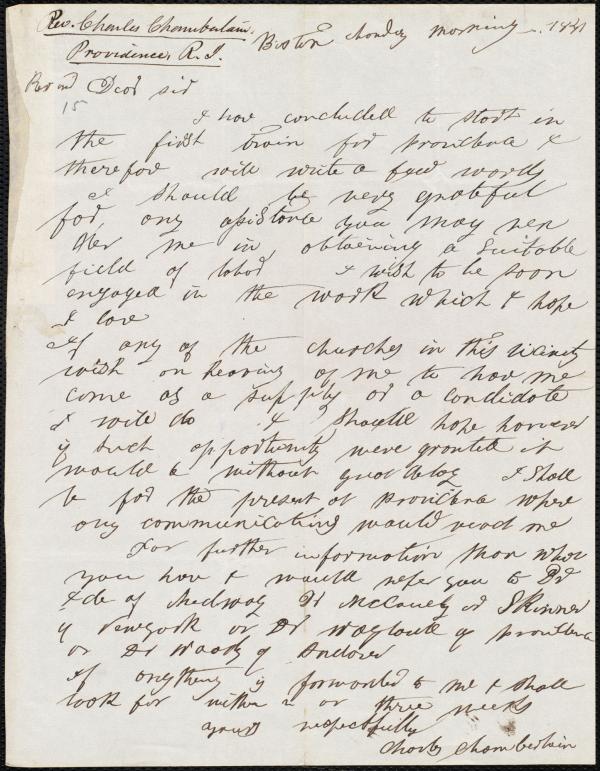 Rev. Charles Chamberlain.
Providence, R. I.
Boston Monday morning 1841
Rev and Dear sir
15
I have concluded to start in
the first train for providence &
therefor will write a few words
I should be very grateful
for any assistance you may ren
der me in obtaining a suitable
field of labor I wish to be soon
engaged in the work which I hope
I love
If any of the churches in this vicinity
wish on hearing of me to have me
come as a supply or a candidate
I will do & should hope however
if such opportunity were granted it
would be without delay I shall
be for the present at providence where
any communications would reach me
For further information than what
you have I would refer you to Dr
Ide of Medway Dr or Skinner
of Newyork or Dr Wayland of providence
or Dr Woods of Andover
If anything is forwarded to me I shall
look for within 2 or three weeks
yours respectfully
Charles Chamberlain